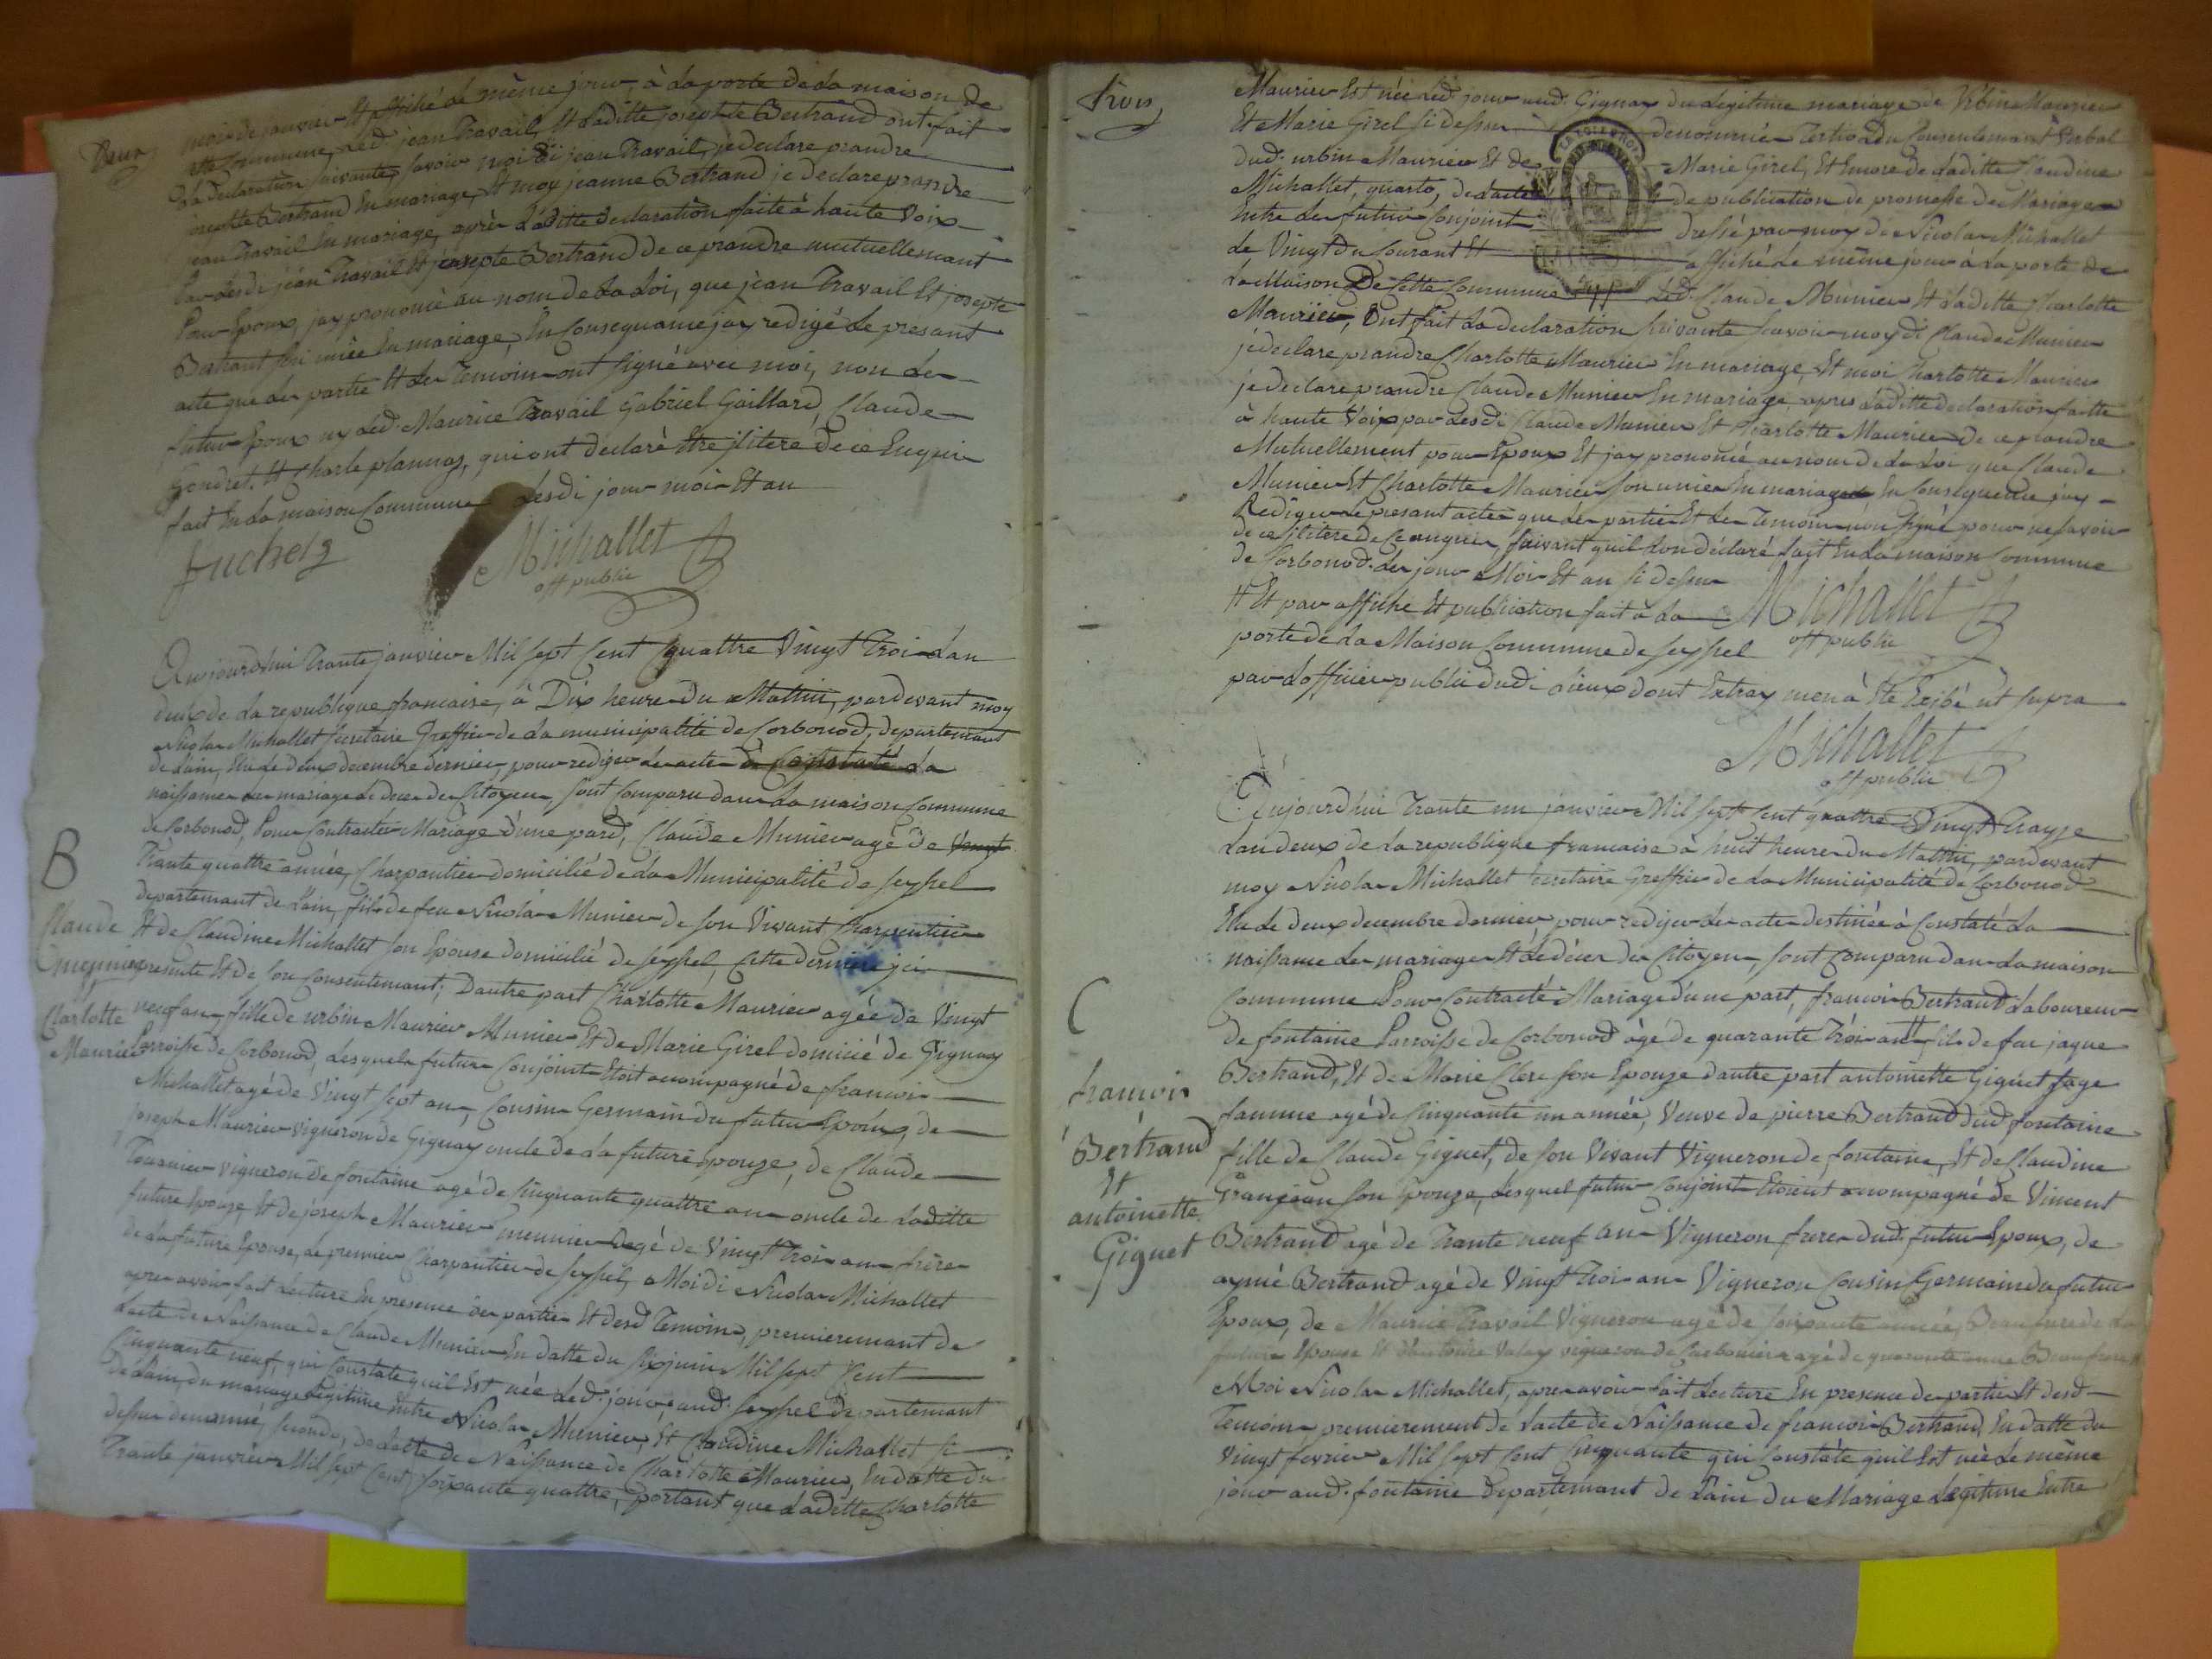 Deux
mois de janvier Et affiché le même jour, à la porte de la maison de
cette commune, led. jean Travail, Et laditte josepte Bertrand ont fait
La declaration suivante, savoir moi di jean Travail, je declare prandre
josepte Bertrand En mariage, Et moy jeanne Bertrand je declare prandre
jean Travail En mariage, après laditte declaration faite à haute Voix
Par lesdi jean Travail Et josepte Bertrand de ce prandre mutuellemant
Pour Epoux, jay prononcé au nom de la Loi, que jean Travail Et josepte
Bertrant son uniée En mariage, En consequance jay redigé le presant
acte que les partie Et les Temoin ont signé avec moi, non les
futur Epoux ny led. Maurice Travail Gabriel Gaillard, Claude
Gondret, Et Charle plannaz, qui ont declaré Etre jliteré de ce Enquir
fait En la maison Commune lesdi jour mois Et an
juchetz
Michallet
off public
Aujourdhui Trante janvier Mil sept Cent quattre Vingt Troi Lan
deux de la republique francaise, à Dix heure du Mattin, pardevant moy
Nicolas Michallet secretaire Greffier de la municipalité de Corbonod, departemant
de Lain, Elu le deux decembre dernier, pour rediger les acte à Constaté la
naissance les mariage Le deces des Citoyen, sont comparu dans la maison commune
de Corbonod, Pour Contracter Mariage d'une pard, Claude Munier agé de Vingt
Trante quattre année, Charpantier domicilié de la Municipalité de seyssel
departemant de Lain, fils de feu Nicolas Munier de son Vivant Charpentier
Et de Claudine Michallet son Epouse domicilié de seyssel, Cette derniere jci
presente Et de son consentemant; Dautre part Charlotte Maurier agée de Vingt
neuf an, fille de urbin Maurier Munier Et de Marie Girel domicié de Gignay
Parroisse de Corbonod, lesquels futur Conjoint Etoit accompagné de francois
Michallet agé de Vingt sept an, Cousin Germain du futur Epoux, de
joseph Maurier vigneron de Gignay oncle de la future Epouze, de Claude
Tournier Vigneron de fontaine agé de Cinquante quattre an oncle de Laditte
future Epouze, Et de joseph Maurier meunier agé de Vingt Troi an frère
de la future Epouse, le premier Charpantier de seyssel, Moi di Nicolas Michallet
apres avoir fait Lecture En presence des partie Et desd Temoin, premieremant de
lacte de Naissance de Claude Munier En datte du six juin Mil sept Cent
Cinquante neuf, qui Constate quil Est née led. jour, aud. seyssel departemant
de Lain, du mariage Legitime Entre Nicolas Munier, Et Claudine Michallet si
dessus denommé, secondo, de lacte de Naissance de Charlotte Maurier, En datte du
Trante janvier Mil sept Cent soixante quattre, portant que Laditte Charlotte
B
Claude
Charlotte
Maurier
Trois
Maurier Est née led. jour aud. Gignay du Legitime mariage de Urbin Maurier
Et Marie Girel si dessus denommée Tertio du Consentemant Verbal
dud. urbin Maurier Et de Marie Girel, Et Encore de Laditte Claudine
Michallet, quarto, de lacte de publication de promesse de Mariage
Entre les futur Conjoint dressé par moy di Nicolas Michallet
le Vingt du Courant Et affiché le même jour à la porte de
La Maison De Cette Commune Led. Claude Munier Et Laditte Charlotte
Maurier, Ont fait La declaration suivante savoir moy di Claude Munier
je declare prandre Charlotte Maurier En mariage, Et moi Charlotte Maurier
je declare prandre Claude Munier En mariage apres Laditte declaration faitte
à haute Voix par Lesdi Claude Munier Et Charlotte Maurier de ce prandre
Mutuellement pour Epoux Et jay prononcé au nom de La Loi que Claude
Munier Et Charlotte Maurier son unie En mariage En Consequence jay
Rediger le presant acte que les partie Et les Temoin non signé pour ne savoir
de ce jliteré de ce enquis, suivant quil Lon déclaré fait En la maison Commune
de Corbonod. les jour Mois Et an si dessus
# Et par affiche Et publication fait à la
porte de La Maison Commune de seyssel
par Lofficier public dudi Lieux dont Extray men à Eté Exibé ut supra
Michallet
off public
Michallet
off public
Aujourdhui Trante un janvier Mil sept Cent quattre Vingt Trayze
Lan deux de la republique francaise à huit heure du Mattin, pardevant
moy Nicolas Michallet secretaire Greffier de La Municipalité de Corbonod
Elu le deux decembre dernier, pour rediger les acte destinée à Constaté La
naissance les mariage Et Le déces des Citoyen, sont Comparu dans la maison
Commune Pour Contracté Mariage d'une part, francois Bertrand Laboureur
de fontaine Parroisse de Corbonod agé de quarante Troi an # fils de feu jaque
Bertrand, Et de Marie Clere son Epouze dautre part antoinette Giguet sage
famme agé de Cinquante un année, Veuve de pierre Bertrand dud fontaine
fille de Claude Giguet, de son Vivant Vigneron de fontaine, Et de Claudine
Granjean son Epouze, Lesquel futur Conjoint Etoient accompagné de Vincent
Bertrand agé de Trante neuf an Vigneron frere dud. futur Epoux, de
aymé Bertrand agé de Vingt Troi an Vigneron Cousin Germain du futur
Epoux, de Maurice Travail Vigneron agé de soixante année, Beau frere de La
future Epouse Et dantoine Valey vigneron de Carbonier agé de quarante anné Beaufrere
Moi Nicolas Michallet, apres avoir fait Lecture En presence des partie Et desd
Temoin premierement de lacte de Naissance de francois Bertrand, En datte du
Vingt fevrier Mil sept Cent Cinquante qui Constate quil Est né Le même
jour aud. fontaine Departemant de Lain du Mariage Legitime Entre
C
francois
Bertrand
Et
antoinette
Giguet